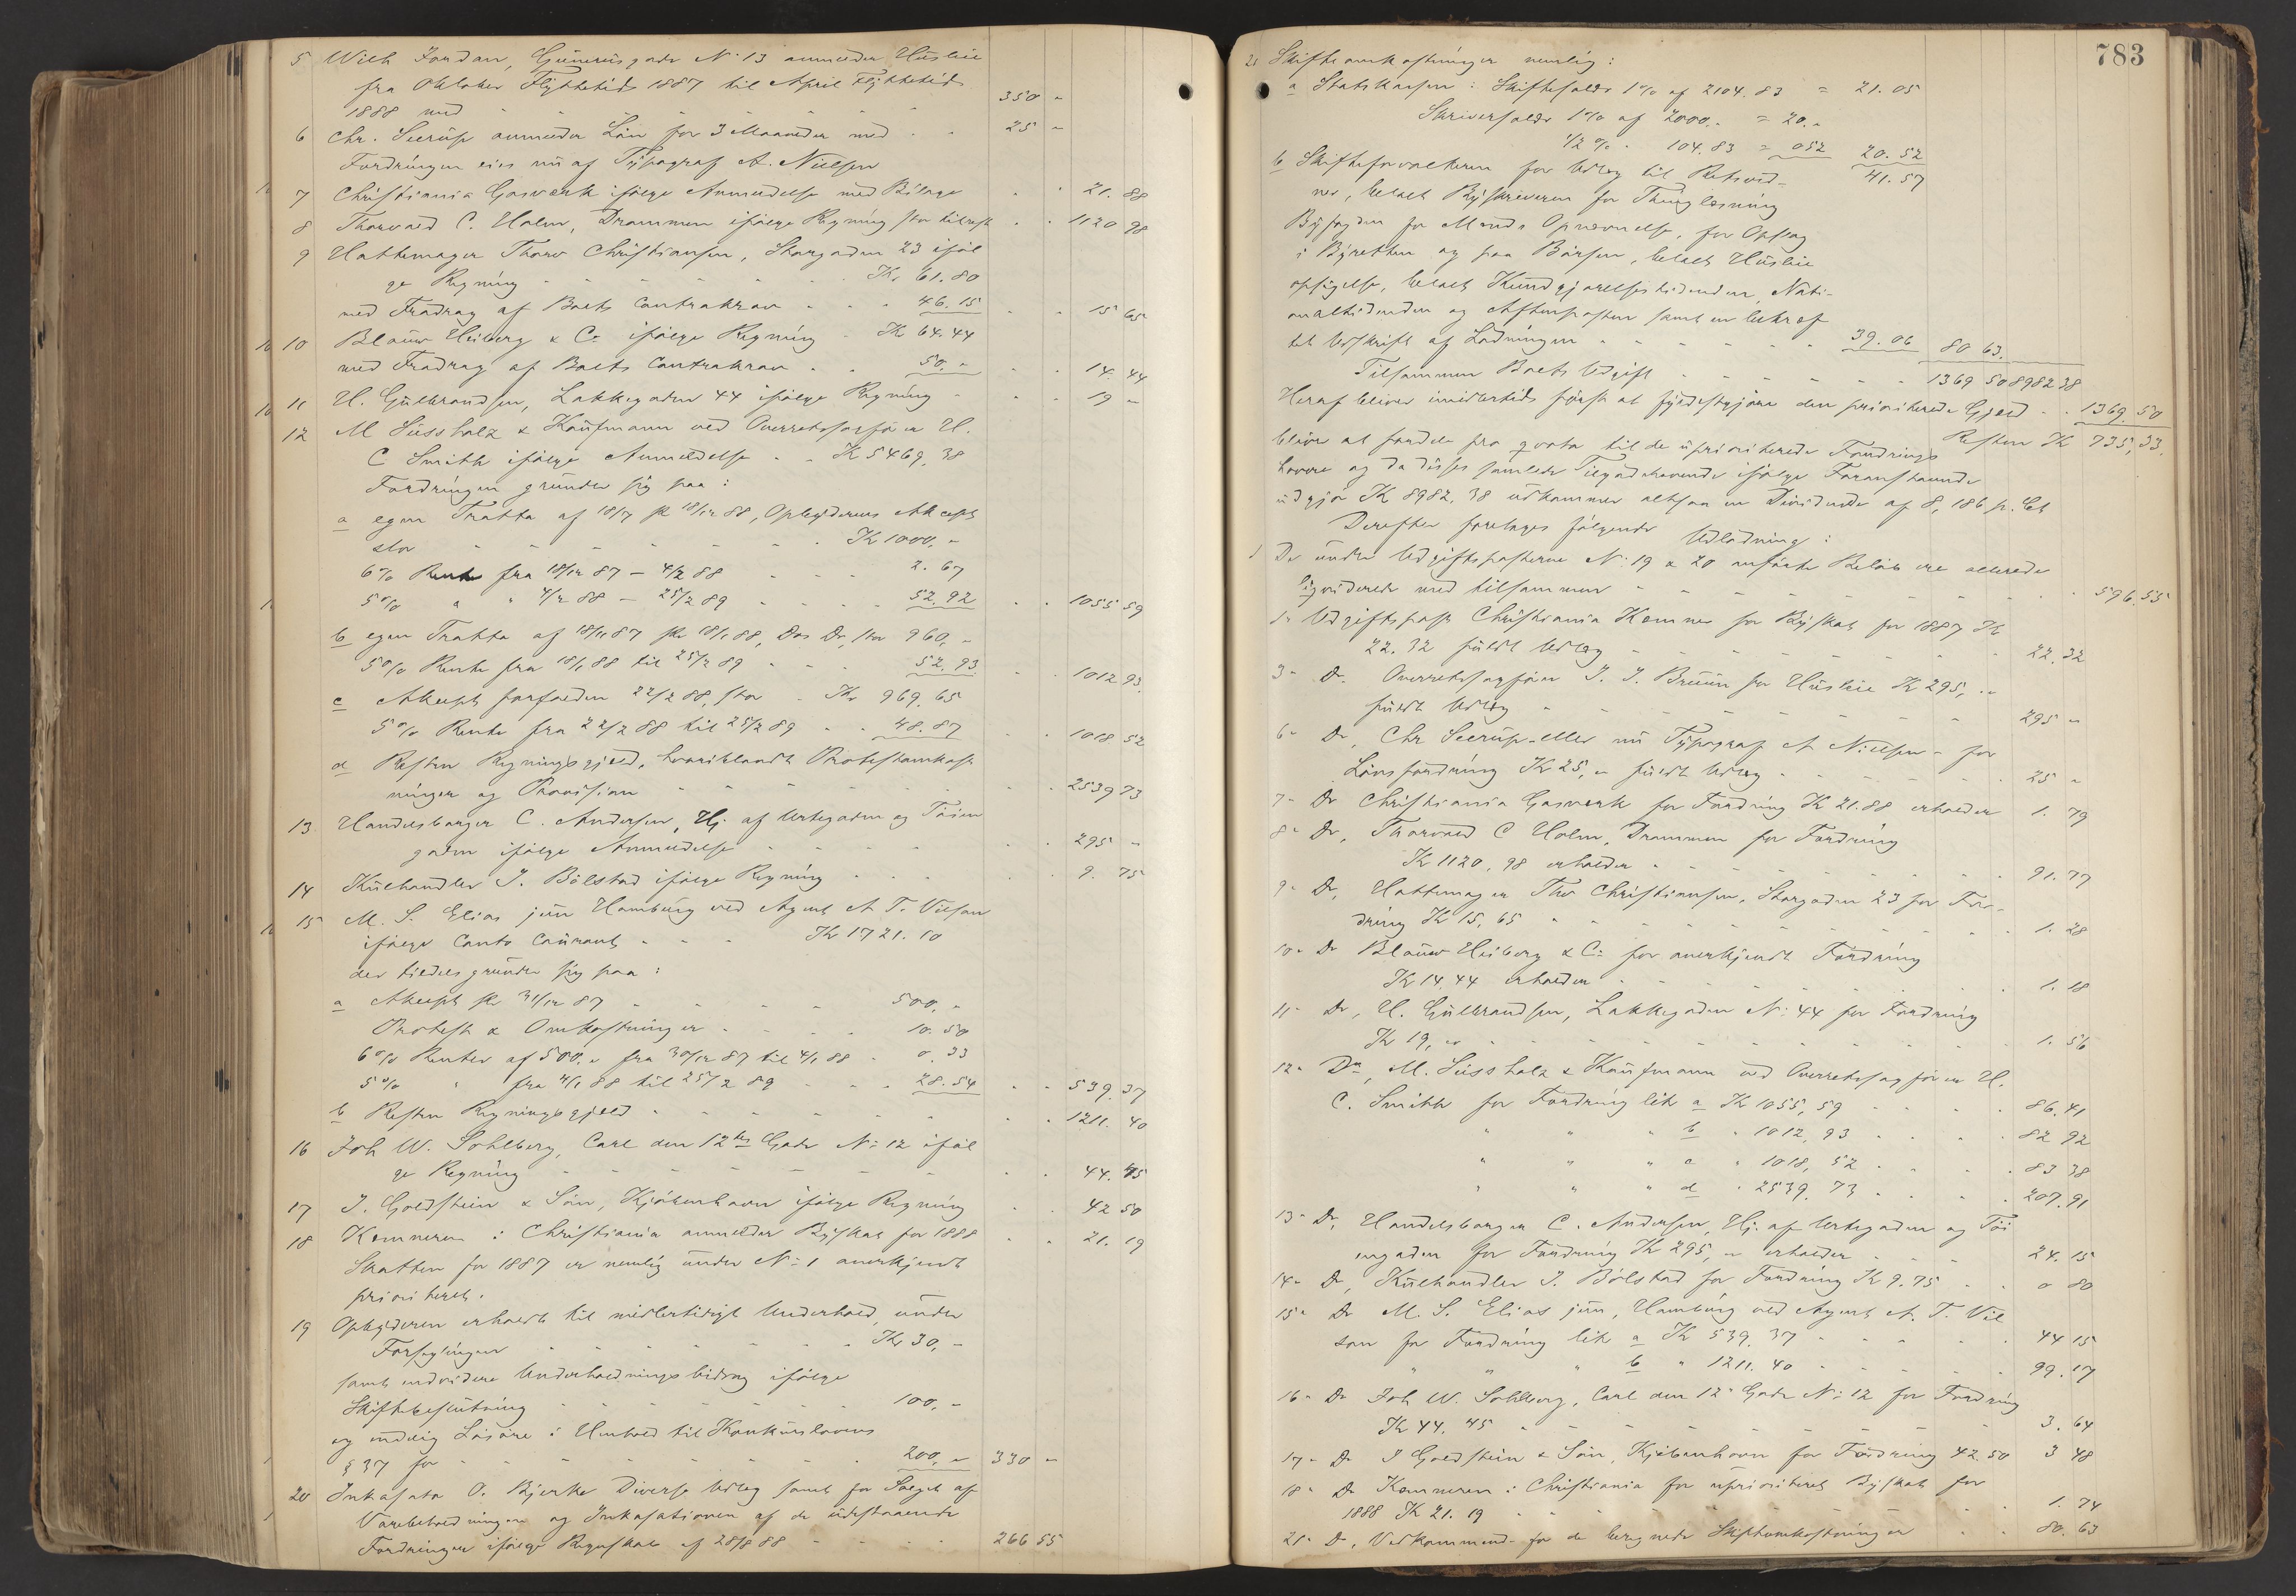 5 Wilh Jordan, Gunerusgade No 13 anmelder Husleie
fra Oktober Flyttetid 1887 til April Flyttetid
1888 med 350 "
6 Chr. Seerup anmelder Lön for 3 Maaneder med 25 "
Fordringen eies nu af Typograf A. Nielsen
7 Christiania Gasverk ifölge Anmeldelse med Bilage 21. 88
8 Thorvald C. Holm, Drammen ifölge Regning stor tilrest 1120 98
9 Hattemager Thorv Christiansen, Storgaden 23 iföl
ge Regning Kr 61. 80
med Fradrag af Boets Contrakrav 46. 15 15 65
10 Blauw Heiberg & Co ifölge Regning Kr 64. 44
med Fradrag af Boets Contrakrav 50. " 14. 44
11 H. Gulbrandsen, Lakkegaden 44 ifölge Regning 19 "
12 M Süssholz & Kaufmann ved Overretssagförer H.
C Smith ifölge Anmeldelse Kr 5469. 38
Fordringen grunder sig paa :
a egen Tratta af 18/17 pr 18/12 88, Opbyderens Akcept
stor Kr 1000. "
6% Rente fra 18/12 87 – 4/2 88 2. 67
5% " " 4/2 88 – 25/2 89 52. 92 1055 59
b egen Tratta af 18/11 87 pr 18/1 88, Dos Do, stor 960, "
5% Rente fra 18/1 88 til 25/2 89 52. 93 1012 93.
c Akcept forfalden 22/2 88, stor Kr 969. 65
5% Rente fra 22/2 88 til 25/2 89 48. 87 1018 52
d Resten Regningsgjæld, hvoriblandt Protestomkost
ninger og Provision 2539 73
13 Handelsborger C. Andersen, Hj. af Urtegaden og Töien
gaden ifölge Anmeldelse 295 "
14 Kulhandler J. Bölstad ifölge Regning 9. 75
15 M. S. Elias jun Hamburg ved Agent A T. Vilson
ifölge Conto Courant Kr 1721. 10
der tildels grunder sig paa :
a Akcept pr 31/12 87 500. "
Protest & Omkostninger 10. 50
6% Renter af 500. " fra 30/12 87 til 4/1 88 0. 33
5% " fra 4/1 88 til 25/2 89 28. 54 539. 37
b Resten Regningsgjæld 1211. 40
16 Joh W. Sohlberg, Carl den 12tes Gade No 12 iföl
ge Regning 44. 45
17 J. Goldstein & Sön, Kjöbenhavn ifölge Regning 42 50
18 Kemneren i Christiania anmelder Byskat for 1888 21. 19
Skatten for 1887 er nemlig under No 1 anerkjendt
prioriteret.
19 Opbyderen erholdt til midlertidigt Underhold, under
Forseglingen Kr 30, "
samt endvidere Underholdningsbidrag ifölge
Skiftebeslutning 100, "
og endelig Lösöre i Henhold til Konkurslovens
§ 37 for 200, " 330 "
20 Inkasator O. Bjerke Diverse Udlæg samt for Salget af
Varebeholdningen og Inkasationen af de udestaaende
Fordringer ifölge Regnskab af 28/8 88 266 55
783
21 Skifteomkostninger nemlig :
a Statskassen : Skiftesalær 1% af 2104. 83 = 21. 05
Skriversalær 1% af 2000. " = 20. "
1/2 % " 104. 83 = 052 20. 52
41. 57
b Skifteforvalteren for Udlæg til Retsvid-
ner, betalt Byskriveren for Thinglæsning
Byfogden for Mænds Opnævnelse, for Opslag
i Byretten og paa Börsen, betalt Husleie
opsigelse, betalt Kundgjörelsestidenden, Nati-
onaltidenden og Aftenposten samt en bekræf
tet Udskrift af Lodningen 39. 06 80 63.
Tilsammen Boets Udgift 1369 50 8982 38
Heraf bliver imidlertid först at fyldestgjöre den prioriterede Gjæld 1369. 50
Resten Kr 735, 33.
bliver at fordele pro qvota til de uprioriterede Fordrings
havere og da disses samlede Tilgodehavende ifölge Foranstaaende
udgjör Kr 8982. 38 udkommer altsaa en Dividende af 8, 186 p. Ct
Derefter foretages fölgende Udlodning :
1 De under Udgiftsposterne No 19 & 20 anförte Belöb ere allerede
liqviderede med tilsammen 596. 55
1" Udgiftspost Christiania Kemner for Byskat for 1887 Kr
22. 32 fuldt Udlæg 22. 32
3" Do Overretssagförer J. J. Bruun for Husleie Kr 295, "
fuldt Udlæg 295 "
6" Do, Chr Seerup – eller nu Typograf A Nielsen – for
Lönsfordring Kr 25, " fuldt Udlæg 25 "
7" Do Christiania Gasverk for Fordring Kr 21. 88 erholder 1. 79
8" Do, Thorvald C Holm, Drammen for Fordring
Kr 1120, 98 erholder 91. 77
9" Do, Hattemager Thv Christiansen, Storgaden 23 for For-
dring Kr 15, 65 1. 28
10" Do Blauw Heiberg & Co for anerkjendt Fordring
Kr 14. 44 erholder 1. 18
11" Do, H. Gulbrandsen, Lakkegaden No 44 for Fordring
Kr 19, " 1. 56
12" Do, M. Süssholz & Kaufmann ved Overretssagförer H.
C. Smith for Fordring litr a Kr 1055, 59 86. 41
" " " b " 1012, 93 82 92
" " " c " 1018, 52 83 38
" " " d " 2539. 73 207. 91
13" Do, Handelsborger C. Andersen, Hj. af Urtegaden og Töi
engaden for Fordring Kr 295, " erholder 24. 15
14" Do, Kulhandler J. Bölstad for Fordring Kr 9. 75 0 80
15" Do M. S. Elias jun, Hamburg ved Agent A. T. Vil
son for Fordring litr a Kr 539. 37 44 15
" " " b " 1211. 40 99. 17
16" Do Joh W. Sohlberg, Carl den 12" Gade No 12 for Fordring
Kr 44. 45 3. 64
17" Do J Goldstein & Sön, Kjöbenhavn for Fordring 42. 50 3 48
18" Do Kemneren i Christiania for uprioriteret Byskat for
1888 Kr 21. 19 1. 74
21" Do, Vedkommende for de beregnede Skifteomkostninger 80. 63